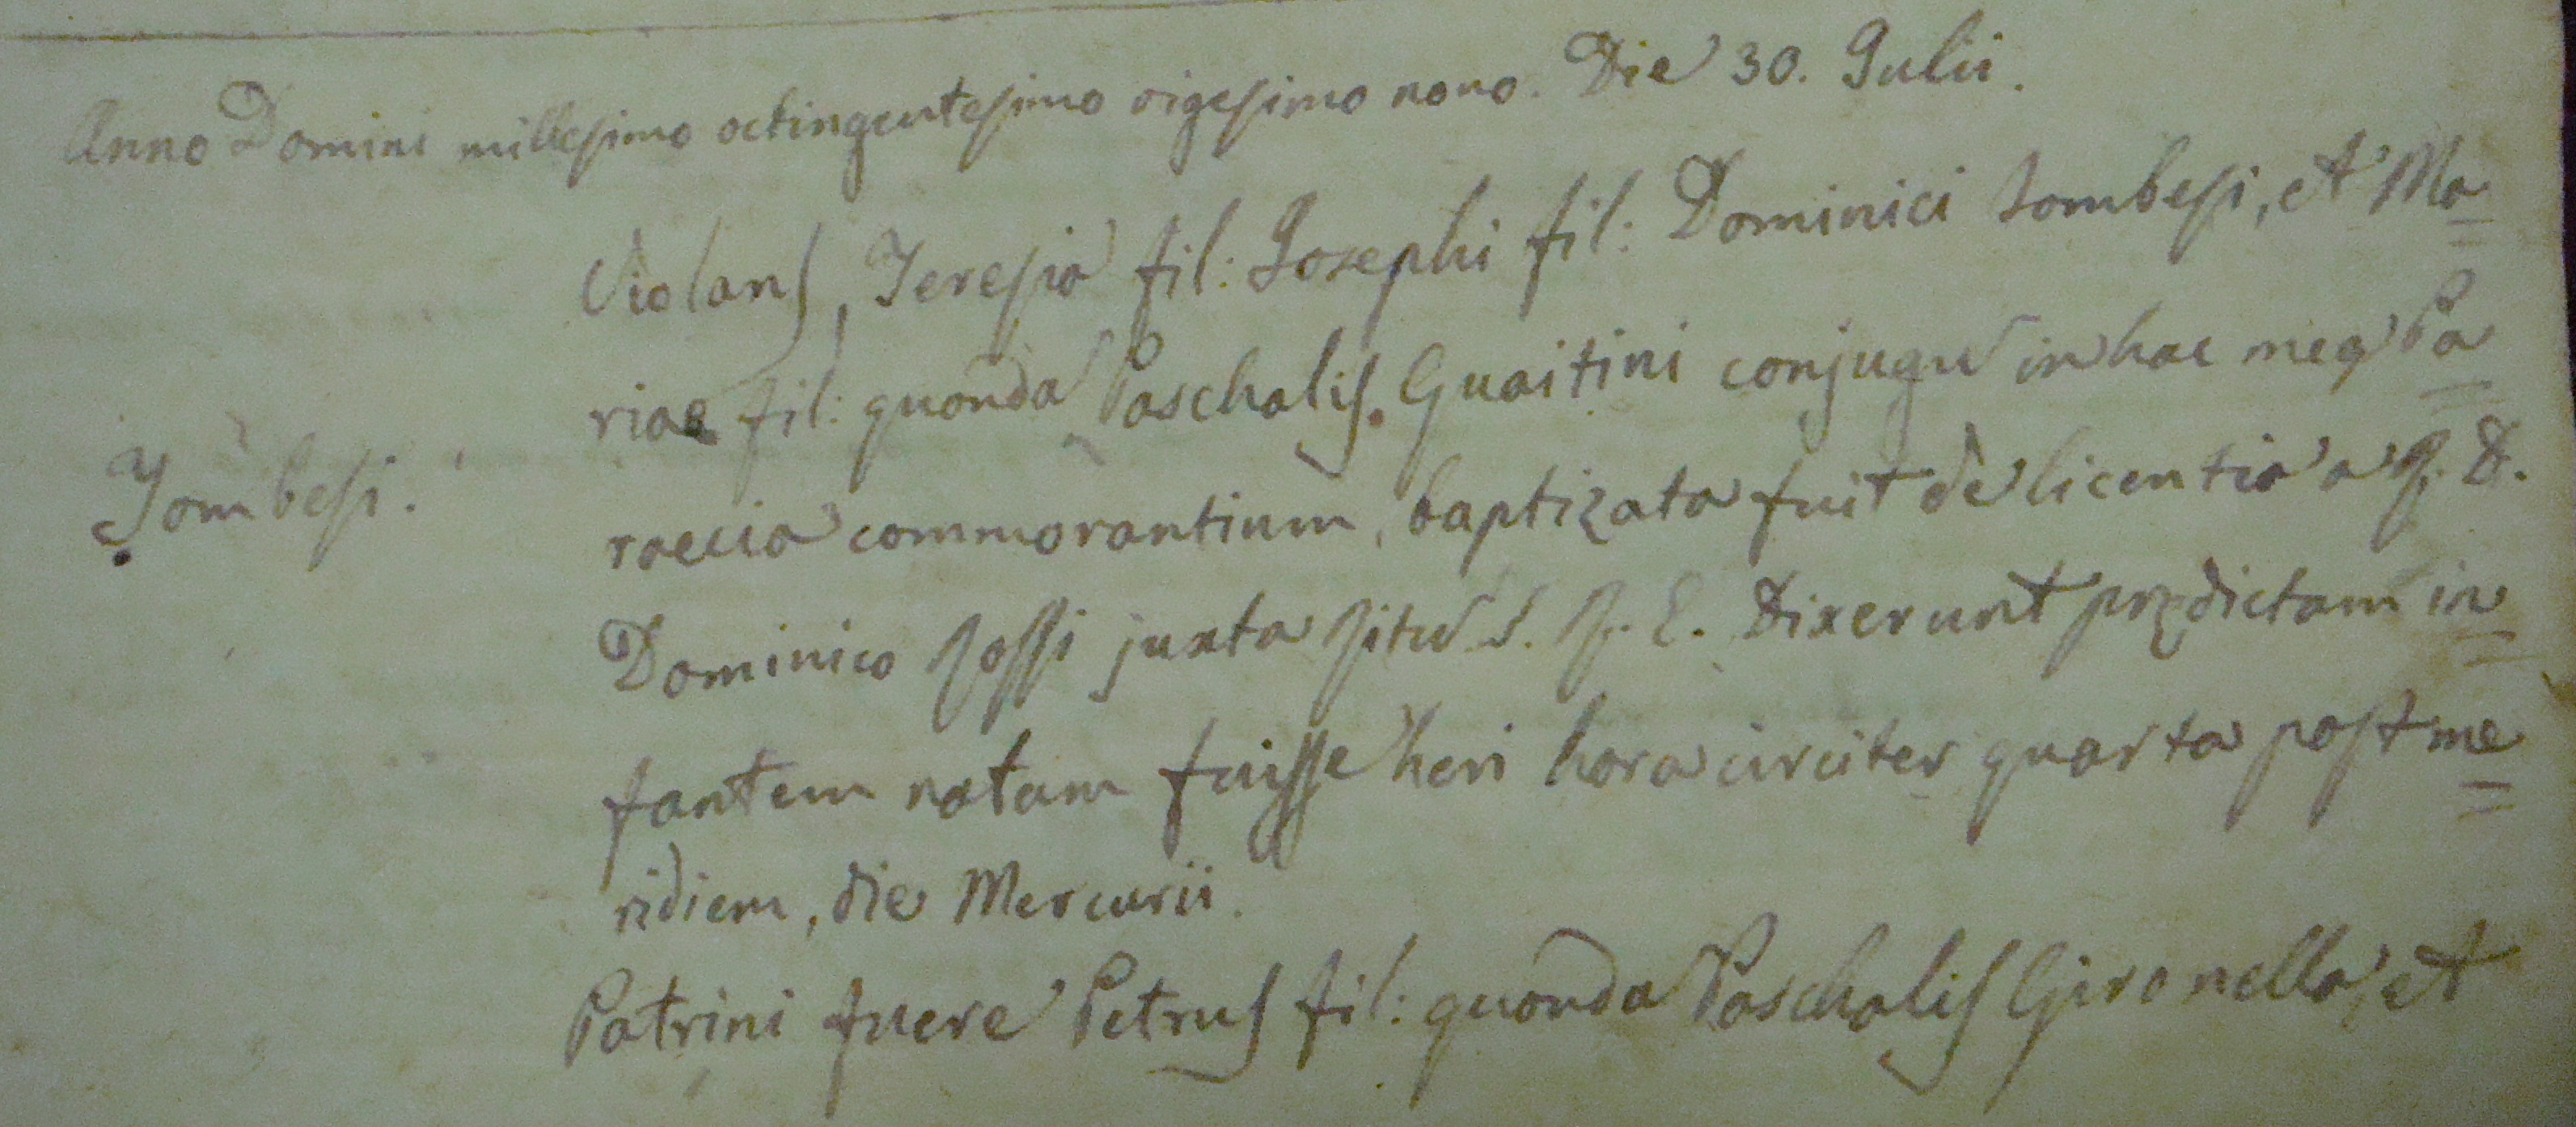 Anno Domini millesimo octingentesimo vigesimo nono. Die 30. Julii.
Violans, Teresia fil: Josephi fil: Dominici Tombesi, et Ma=
riae fil: quonda Paschalis Guaitini conjugu in hac mea Pa=
Tombesi.
raecia commorantium, baptizata fuit de licentia a R. D.
Dominico Rossi juxta Ritu S. R. E. Dixerunt prędictam in=
fantem natam fuisse heri hora circiter quarta post me=
ridiem, die Mercurii.
Patrini fuere Petrus fil: quonda Paschalis Gironella, et